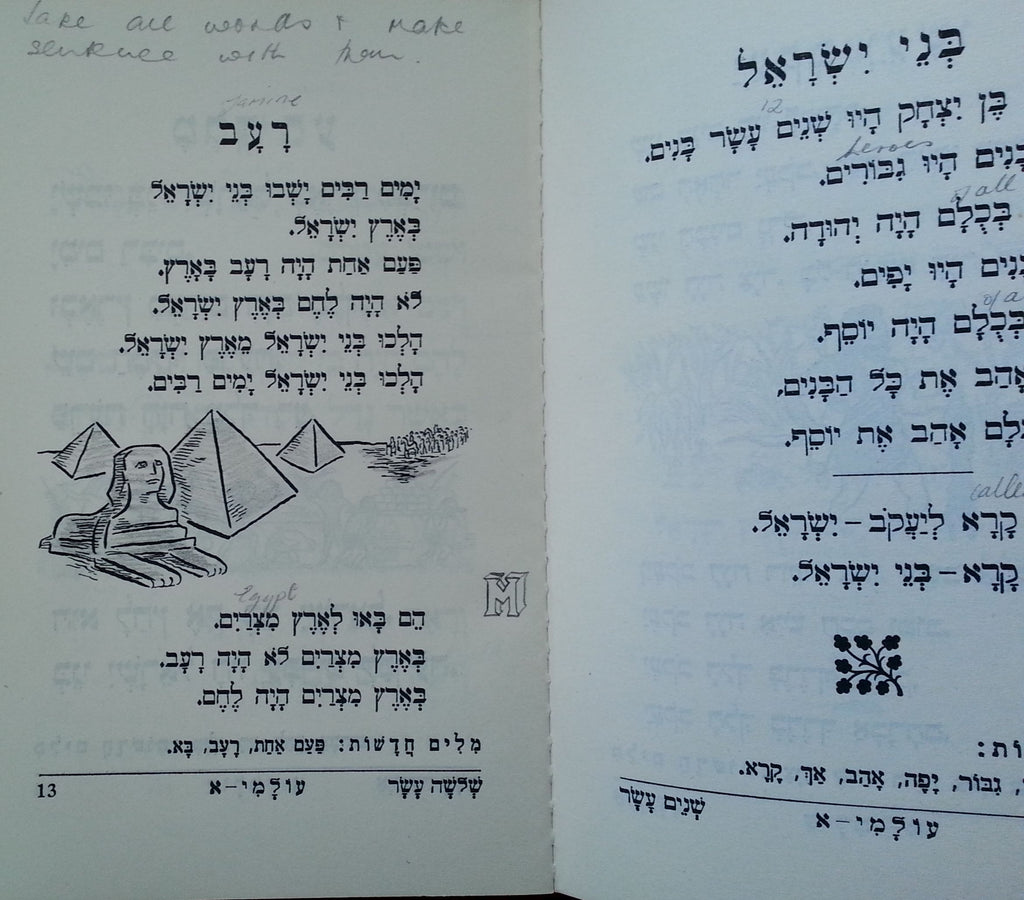 Take all words & make
sentence with them.
famine
רָעָב
יָמִים רַבִּים יָשְׁבוּ בְּנֵי יִשְׂרָאֵל
בְּאֶרֶץ יִשְׂרָאֵל.
פַּעַם אַחַת הָיָה רָעָב בָּאָרֶץ.
לֹא הָיָה לֶחֶם בְּאֶרֶץ יִשְׂרָאֵל.
הָלְכוּ בְּנֵי יִשְׂרָאֵל מֵאֶרֶץ יִשְׂרָאֵל.
הָלְכוּ בְּנֵי יִשְׂרָאֵל יָמִים רַבִּים.
M
Egypt
הֵם בָּאוּ לְאֶרֶץ מִצְרַיִם.
בְּאֶרֶץ מִצְרַיִם לֹא הָיָה רָעָב.
בְּאֶרֶץ מִצְרַיִם הָיָה לֶחֶם.
מִלִּים חֲדָשׁוֹת: פַּעַם אַחַת, רָעָב, בָּא.
שְׁלֹשָׁה עָשָׂר עוֹלָמִי–א 13
בְּנֵי יִשְׂרָאֵל
12
בֶּן יִצְחָק הָיוּ שְׁנֵים עָשָׂר בָּנִים.
heroes
בָּנִים הָיוּ גִבּוֹרִים.
of all
בְּכֻלָּם הָיָה יְהוּדָה.
הָיוּ יָפִים.
of a
בְּכֻלָּם הָיָה יוֹסֵף.
אָהַב אֶת כָּל הַבָּנִים,
אָהַב אֶת יוֹסֵף.
calle
קָרָא לְיַעֲקֹב – יִשְׂרָאֵל.
קָרָא – בְּנֵי יִשְׂרָאֵל.
וֹת:
גִּבּוֹר, יָפֶה, אָהַב, אַךְ, קָרָא.
עוֹלָמִי–א שְׁנֵים עָשָׂר